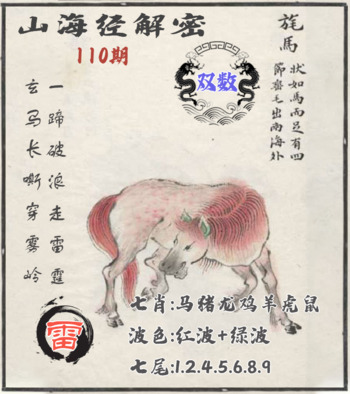 山海经解密
110期
双数
旄馬
状如馬而足有四
節皆毛出南海外
一蹄破浪走雷霆
玄马长嘶穿雾岭
七肖:马猪龙鸡羊虎鼠
波色:红波+绿波
七尾:1.2.4.5.6.8.9
雷